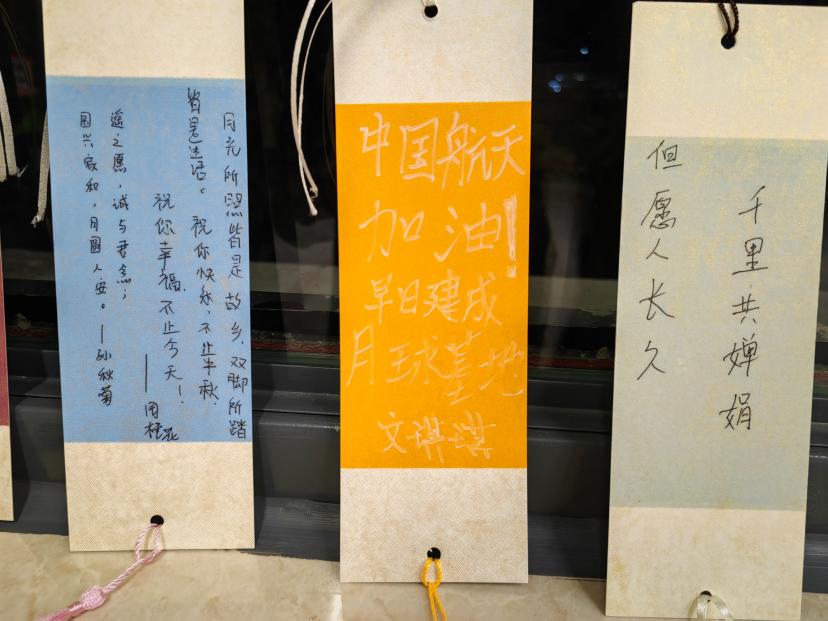 月光所照皆是故乡,双脚所踏
皆是生活。祝你快乐,不止中秋,
祝你幸福,不止今天!
——周桂花
遥之愿,诚与君念;
国兴家和,月圆人安。——孙秋菊
中国航天
加油!
早日建成
月球基地
文琪琪
但愿人长久
千里共婵娟